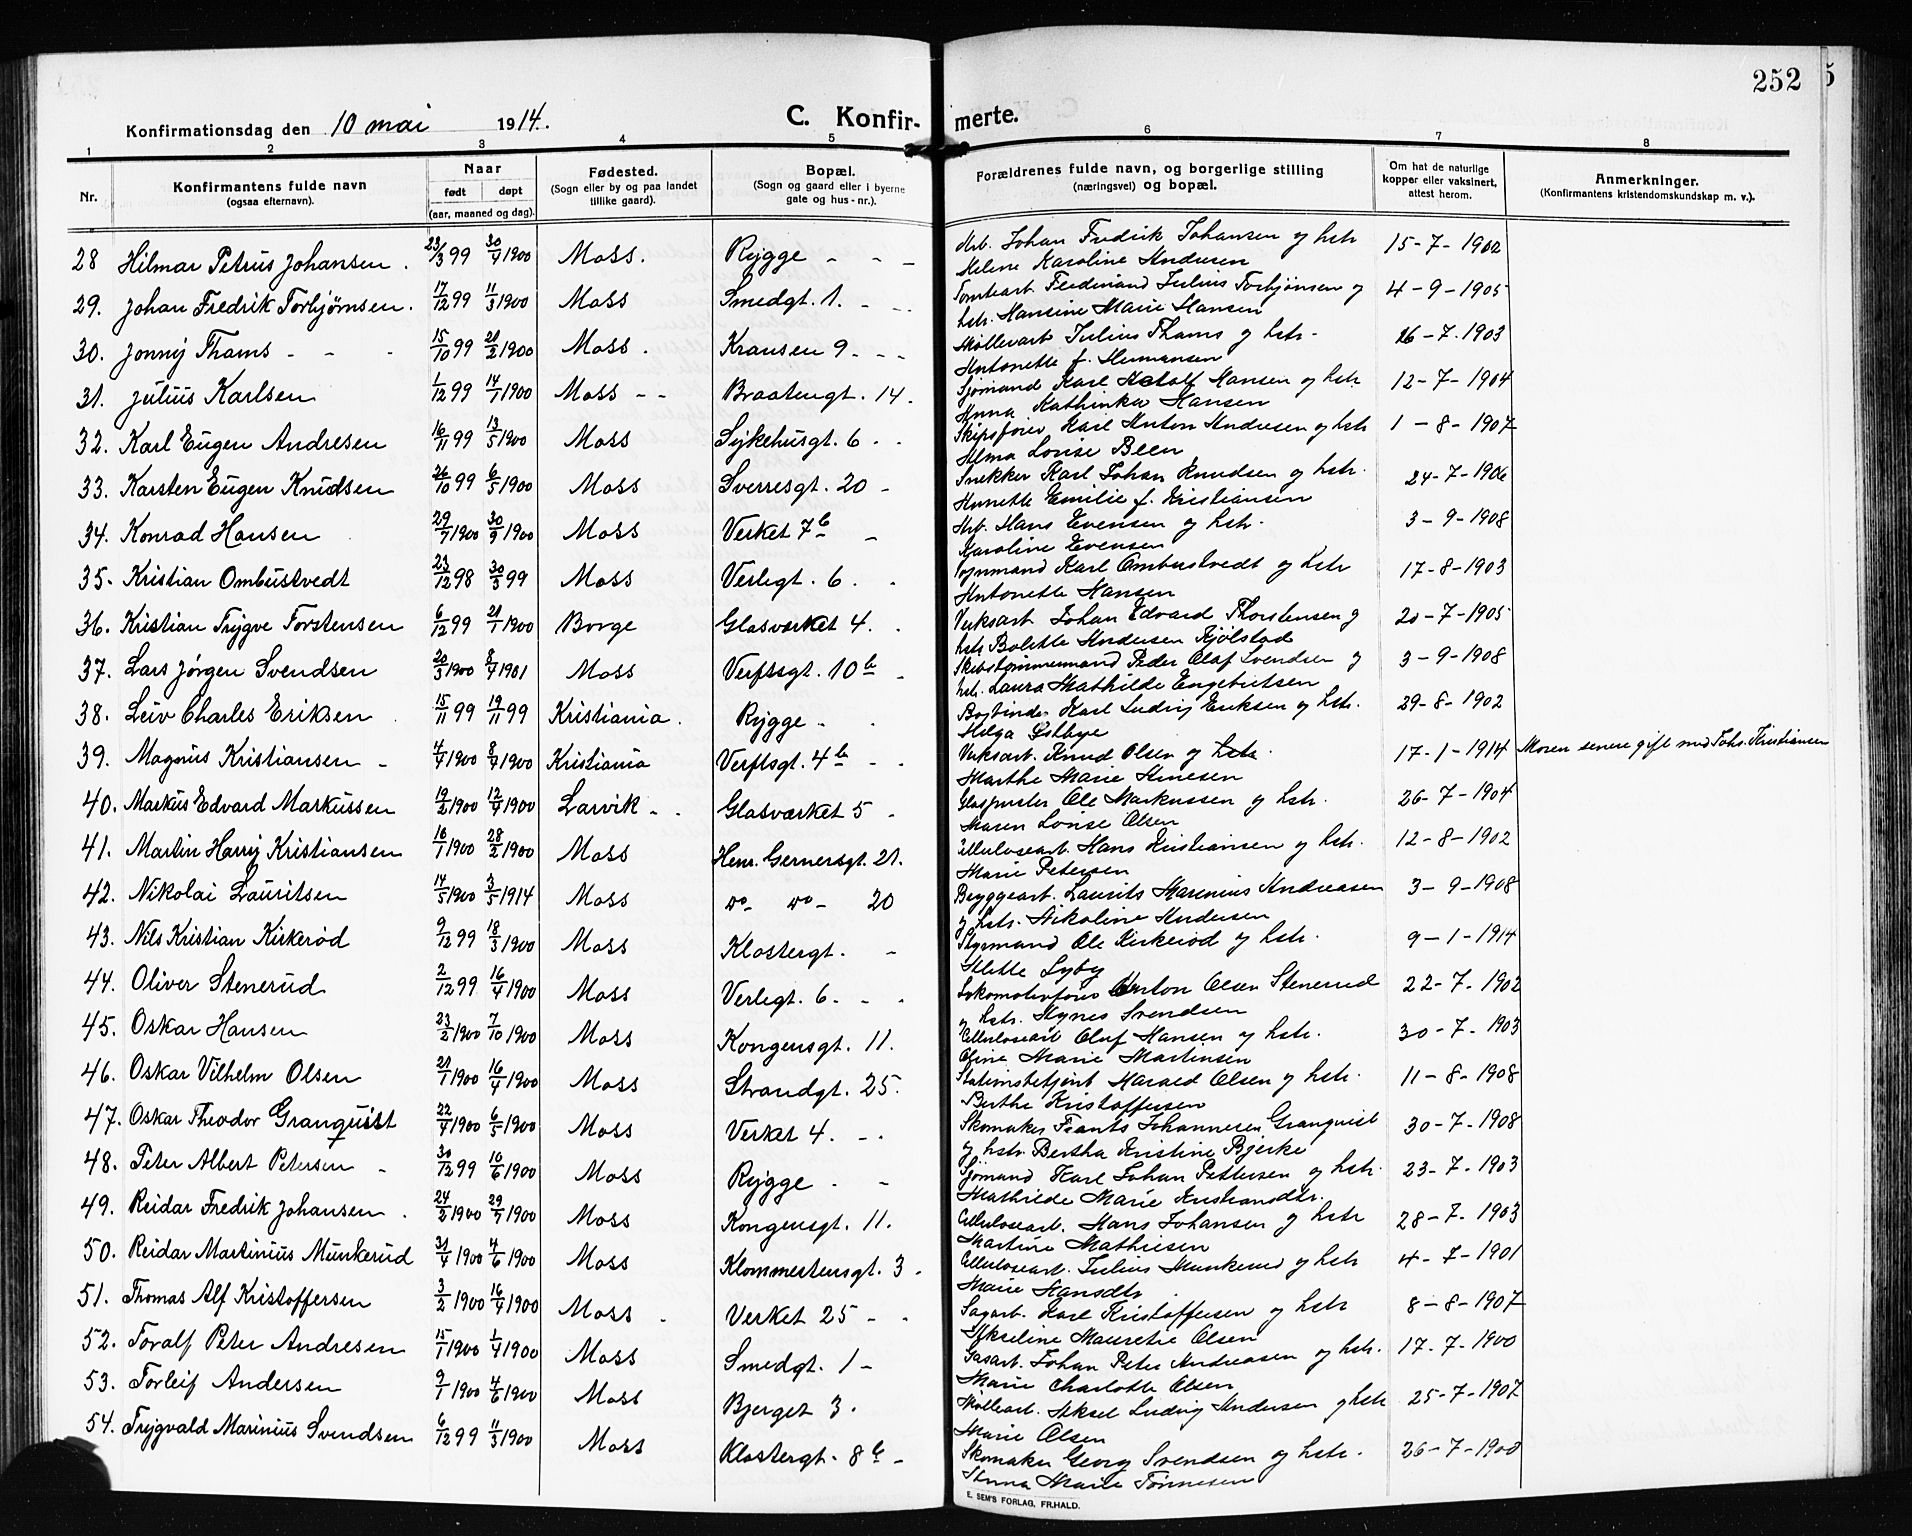 252
Konfirmationsdag den 10 mai 1914.
C. Konfirmerte.
1 2 3 4 5 6 7 8
Nr.
Konfirmantens fulde navn
(ogsaa efternavn).
Naar
født døpt
(aar, maaned og dag).
Fødested.
(Sogn eller by og paa landet
tillike gaard).
Bopæl.
(Sogn og gaard eller i byerne
gate og hus-nr.).
Forældrenes fulde navn, og borgerlige stilling
(næringsvei) og bopæl.
Om hat de naturlige
kopper eller vaksinert,
attest herom.
Anmerkninger.
(Konfirmantens kristendomskundskap m. v.).
28 Hilmar Petrus Johansen. 23/3 99 30/4 1900 Moss. Rygge - - - Arb. Johan Fredrik Johansen og hstr 15-7-1902
Helene Karoline Andresen
29. Johan Fredrik Torbjørnsen. 17/12 99 11/3 1900 Moss Smedgt. 1. - - Tomtearb. Ferdinand Julius Torbjønsen og 4-9-1905
hstr. Hansine Marie Hansen
30. Jonny Thams - - - 15/10 99 21/2 1900 Moss. Kransen 9 - - - Møllearb. Julius Thams og hstr. 26-7-1903
Antonette f. Hermansen
31. Julius Karlsen 1/12 99 14/1 1900 Moss - - Braatengt. 14. Sjømand Karl Adolf Hansen og hstr. 12-7-1904
Anna Kathinka Hansen
32. Karl Eugen Andresen 16/11 99 13/5 1900 Moss Sykehusgt. 6 - - Skipsfører Karl Anton Andresen og hstr 1-8-1907
Alma Lovise Been
33. Karsten Eugen Knudsen 26/10 99 6/5 1900 Moss Sverresgt. 20 - Snekker Karl Johan Knudsen og hstr. 24-7-1906
Annette Emilie f. Kristiansen
34. Konrad Hansen 29/7 1900 30/9 1900 Moss Verket 7b - Arb. Hans Evensen og hstr. 3-9-1908
Karoline Evensen
35. Kristian Ombustvedt 23/12 98 30/3 99 Moss Verlegt. 6. - Karl Ombustvedt og hstr 17-8-1903
Antonette Hansen
36. Kristian Trygve Torstensen 6/12 99 21/1 1900 Borge Glasværket 4. - Verksarb. Johan Edvard Thorstensen og 20-7-1905
hstr Bolette Andersen Kjølstad
37. Lars Jørgen Svendsen 20/3 1900 8/4 1901 Moss Verftsgt. 10b - Skibstømmermand Peder Olaf Svendsen og 3-9-1908
hstr. Laura Mathilde Engebretsen
38. Leiv Charles Eriksen 15/11 99 19/11 99 Kristiania. Rygge - - Bogbinder Karl Ludvig Eriksen og hstr. 29-8-1902
Helga Østbye
39. Magnus Kristiansen - 4/4 1900 8/4 1900 Kristiania Verftsgt. 4b - - Verksarb. Knud Olsen og hstr. 17-1-1914 Moren senere gift med Johs. Kristiansen
Marthe Marie Arnesen
40. Markus Edvard Markussen 19/2 1900 12/4 1900 Larvik - - Glasværket 5 - Glaspuster Ole Markussen og hstr. 26-7-1904
Maren Lovise Olsen
41. Martin Harry Kristiansen 16/1 1900 28/2 1900 Moss Henr. Gernersgt. 21. Cellulosearb. Hans Kristiansen og hstr. 12-8-1902
Marie Petersen
42. Nikolai Lauritsen 14/5 1900 3/5 1914 Moss do- do- 20 Bryggearb. Laurits Marenius Andreasen 3-9-1908
og hstr. Nikoline Andersen
43. Nils Kristian Kirkerød 9/12 99 18/3 1900 Moss Klostergt. - Styrmand Ole Kirkerød og hstr. 9-1-1914
Alette Lyby
44. Oliver Stenerud 2/12 99 16/4 1900 Moss Verlegt. 6. - - Lokomotivfører Anton Olsen Stenerud 22-7-1902
og hstr. Agnes Svendsen
45. Oskar Hansen 23/2 1900 7/10 1900 Moss Kongensgt. 11. Cellulosearb Oluf Hansen og hstr. 30-7-1903
Oline Marie Martinsen
46. Oskar Vilhelm Olsen 21/1 1900 16/4 1900 Moss Strandgt. 25. Stationsbetjent Harald Olsen og hstr. 11-8-1908
Berthe Kristoffersen
47. Oskar Theodor Granquist 22/4 1900 6/5 1900 Moss Verket 4. - - Skomaker Frants Johannesen Granqvist 30-7-1908
og hstr. Bertha Kristine Bjerke
48. Peter Albert Petersen - 30/12 99 10/6 1900 Moss Rygge - - Sjømand Karl Johan Pettersen og hstr. 23-7-1903
Mathilde Marie Kristiansdtr.
49. Reidar Fredrik Johansen. 24/2 1900 29/7 1900 Moss Kongensgt. 11. Cellulosearb. Hans Johansen og hstr 28-7-1903
Martine Mathiesen
50. Reidar Martinius Munkerud 31/4 1900 4/6 1900 Moss Klommestensgt. 3. Cellulosearb. Julius Munkerud og hstr 4-7-1901
Marie Hansdtr
51. Thomas Alf Kristoffersen 3/2 1900 16/4 1900 Moss. Verket 25 - - Sagarb. Karl Kristoffersen og hstr 8-8-1907
Akseline Mauretie Olsen
52. Toralf Peter Andresen 15/1 1900 1/4 1900 Moss Smedgt. 1 - Gasarb. Johan Peter Andreasen og hstr. 17-7-1900
Marie Charlotte Olsen
53. Torleif Andersen 9/1 1900 4/6 1900 Moss Bjerget 3. Møllearb. Aksel Ludvig Andersen og hstr 25-7-1907
Marie Olsen
54. Trygvald Marinius Svendsen 6/12 99 11/3 1900 Moss Klostergt. 8b - Skomaker Georg Svendsen og hstr. 26-7-1900
Anna Marie Tønnesen
E. SEM'S FORLAG, FR.HALD.